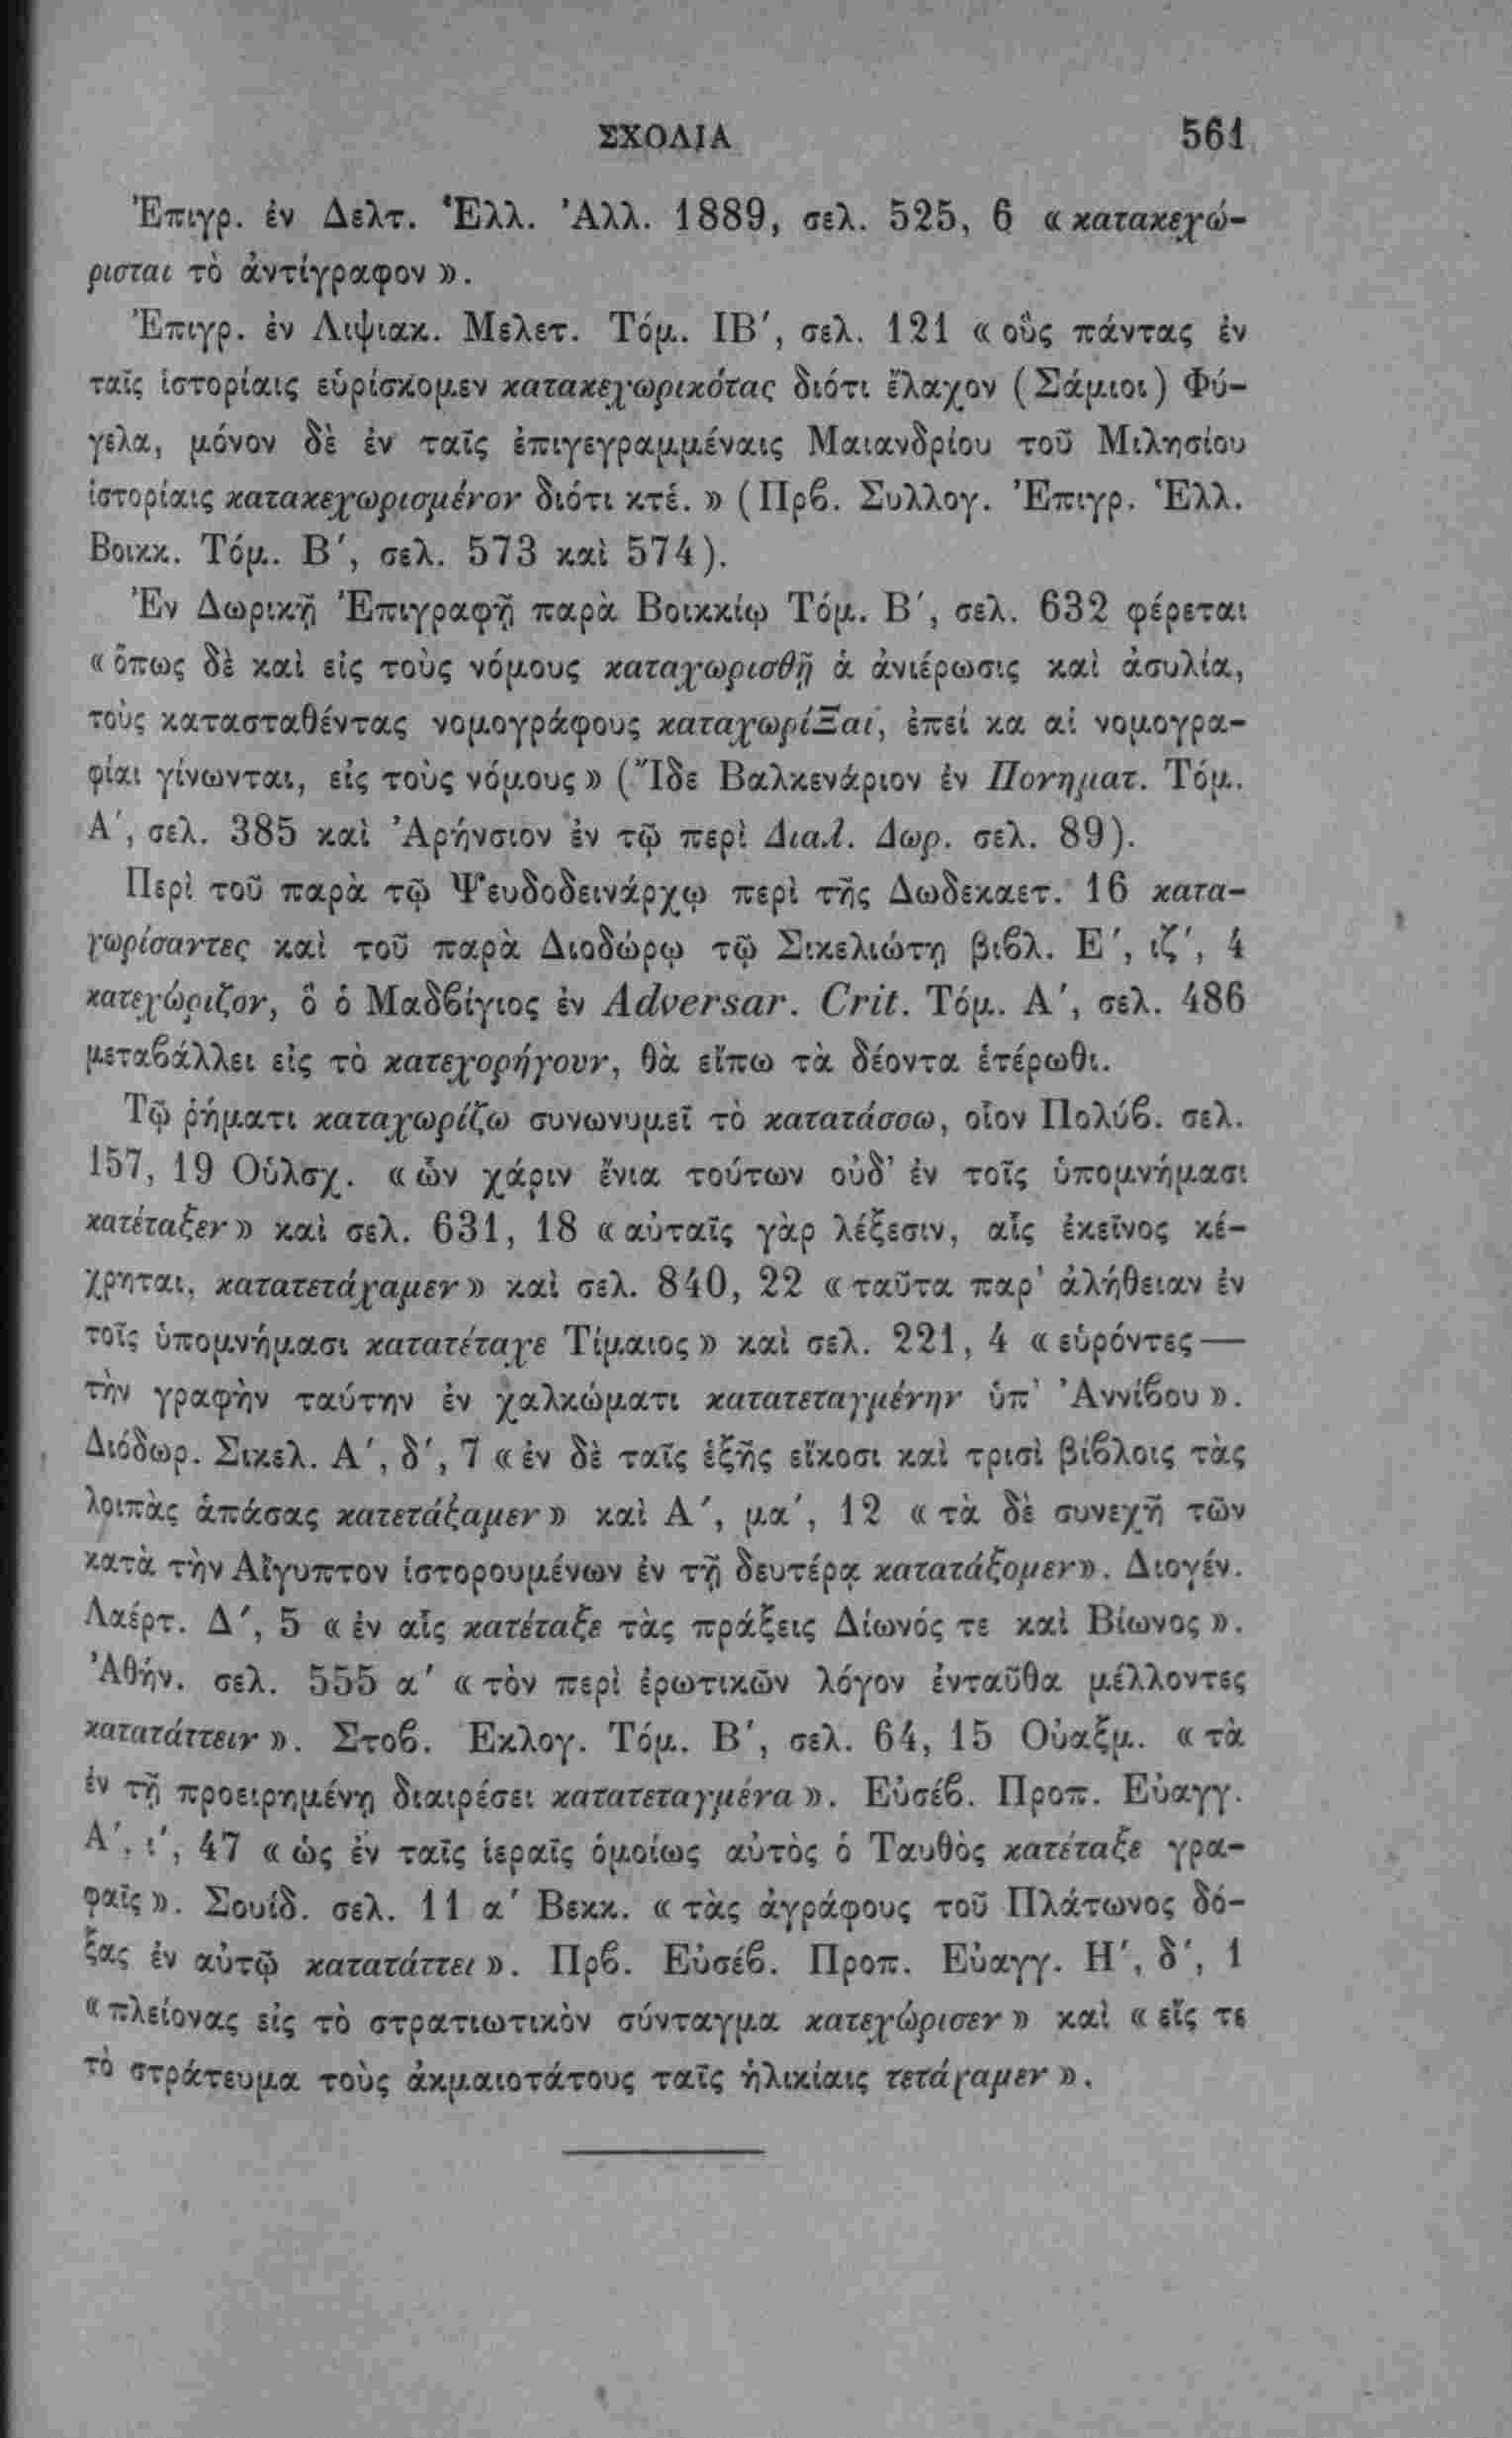 ΣΧΟΛΙΑ 561
Ἐπιγρ. ἐν Δελτ. Ἑλλ. Ἀλλ. 1889, σελ. 525, 6 « κατακεχώ-
ρισται τὸ ἀντίγραφον ».
Ἐπιγρ. ἐν Λιψιακ. Μελετ. Τόμ. ΙΒ′, σελ. 121 « οὓς πάντας ἐν
ταῖς ἱστορίαις εὑρίσκομεν κατακεχωρικότας διότι ἔλαχον (Σάμιοι) Φύ-
γελα, μόνον δὲ ἐν ταῖς ἐπιγεγραμμέναις Μαιανδρίου τοῦ Μιλησίου
ἱστορίαις κατακεχωρισμένον διότι κτέ. » (Πρβ. Συλλογ. Ἐπιγρ. Ἑλλ.
Βοικκ. Τόμ. Β′, σελ. 573 καὶ 574).
Ἐν Δωρικῇ Ἐπιγραφῇ παρὰ Βοικκίῳ Τόμ. Β′, σελ. 632 φέρεται
« ὅπως δὲ καὶ εἰς τοὺς νόμους καταχωρισθῇ ἁ ἀνιέρωσις καὶ ἀσυλία,
τοὺς κατασταθέντας νομογράφους καταχωρίΞαι, ἐπεί κα αἱ νομογρα-
φίαι γίνωνται, εἰς τοὺς νόμους » (Ἴδε Βαλκενάριον ἐν Πονηματ. Τόμ.
Α′, σελ. 385 καὶ Ἀρήνσιον ἐν τῷ περὶ Διαλ. Δωρ. σελ. 89).
Περὶ τοῦ παρὰ τῷ Ψευδοδεινάρχῳ περὶ τῆς Δωδεκαετ. 16 κατα-
χωρίσαντες καὶ τοῦ παρὰ Διοδώρῳ τῷ Σικελιώτῃ βιβλ. Ε′, ιζ′, 4
κατεχώριζον, ὃ ὁ Μαδβίγιος ἐν Adversar. Crit. Τόμ. Α′, σελ. 486
μεταβάλλει εἰς τὸ κατεχορήγουν, θὰ εἴπω τὰ δέοντα ἑτέρωθι.
Τῷ ῥήματι καταχωρίζω συνωνυμεῖ τὸ κατατάσσω, οἷον Πολύβ. σελ.
157, 19 Οὑλσχ. « ὧν χάριν ἔνια τούτων οὐδ᾽ ἐν τοῖς ὑπομνήμασι
κατέταξεν » καὶ σελ. 631, 18 « αὐταῖς γὰρ λέξεσιν, αἷς ἐκεῖνος κέ-
χρηται, κατατετάχαμεν » καὶ σελ. 840, 22 « ταῦτα παρ᾽ ἀλήθειαν ἐν
τοῖς ὑπομνήμασι κατατέταχε Τίμαιος » καὶ σελ. 221, 4 « εὑρόντες —
τὴν γραφὴν ταύτην ἐν χαλκώματι κατατεταγμένην ὑπ᾽ Ἀννίβου ».
Διόδωρ. Σικελ. Α′, δ′, 7 « ἐν δὲ ταῖς ἑξῆς εἴκοσι καὶ τρισὶ βίβλοις τὰς
λοιπὰς ἁπάσας κατετάξαμεν » καὶ Α′, μα′, 12 « τὰ δὲ συνεχῆ τῶν
κατὰ τὴν Αἴγυπτον ἱστορουμένων ἐν τῇ δευτέρᾳ κατατάξομεν ». Διογέν.
Λαέρτ. Δ′, 5 « ἐν αἷς κατέταξε τὰς πράξεις Δίωνός τε καὶ Βίωνος ».
Ἀθήν. σελ. 555 α′ « τὸν περὶ ἐρωτικῶν λόγον ἐνταῦθα μέλλοντες
κατατάττειν ». Στοβ. Ἐκλογ. Τόμ. Β′, σελ. 64, 15 Οὐαξμ. « τὰ
ἐν τῇ προειρημένῃ διαιρέσει κατατεταγμένα ». Εὐσέβ. Προπ. Εὐαγγ.
Α′, ι′, 47 « ὡς ἐν ταῖς ἱεραῖς ὁμοίως αὐτὸς ὁ Τααυθὸς κατέταξε γρα-
φαῖς ». Σουίδ. σελ. 11 α′ Βεκκ. « τὰς ἀγράφους τοῦ Πλάτωνος δό-
ξας ἐν αὐτῷ κατατάττει ». Πρβ. Εὐσέβ. Προπ. Εὐαγγ. Η′, δ′, 1
« πλείονας εἰς τὸ στρατιωτικὸν σύνταγμα κατεχώρισεν » καὶ « εἴς τε
τὸ στράτευμα τοὺς ἀκμαιοτάτους ταῖς ἡλικίαις τετάχαμεν ».